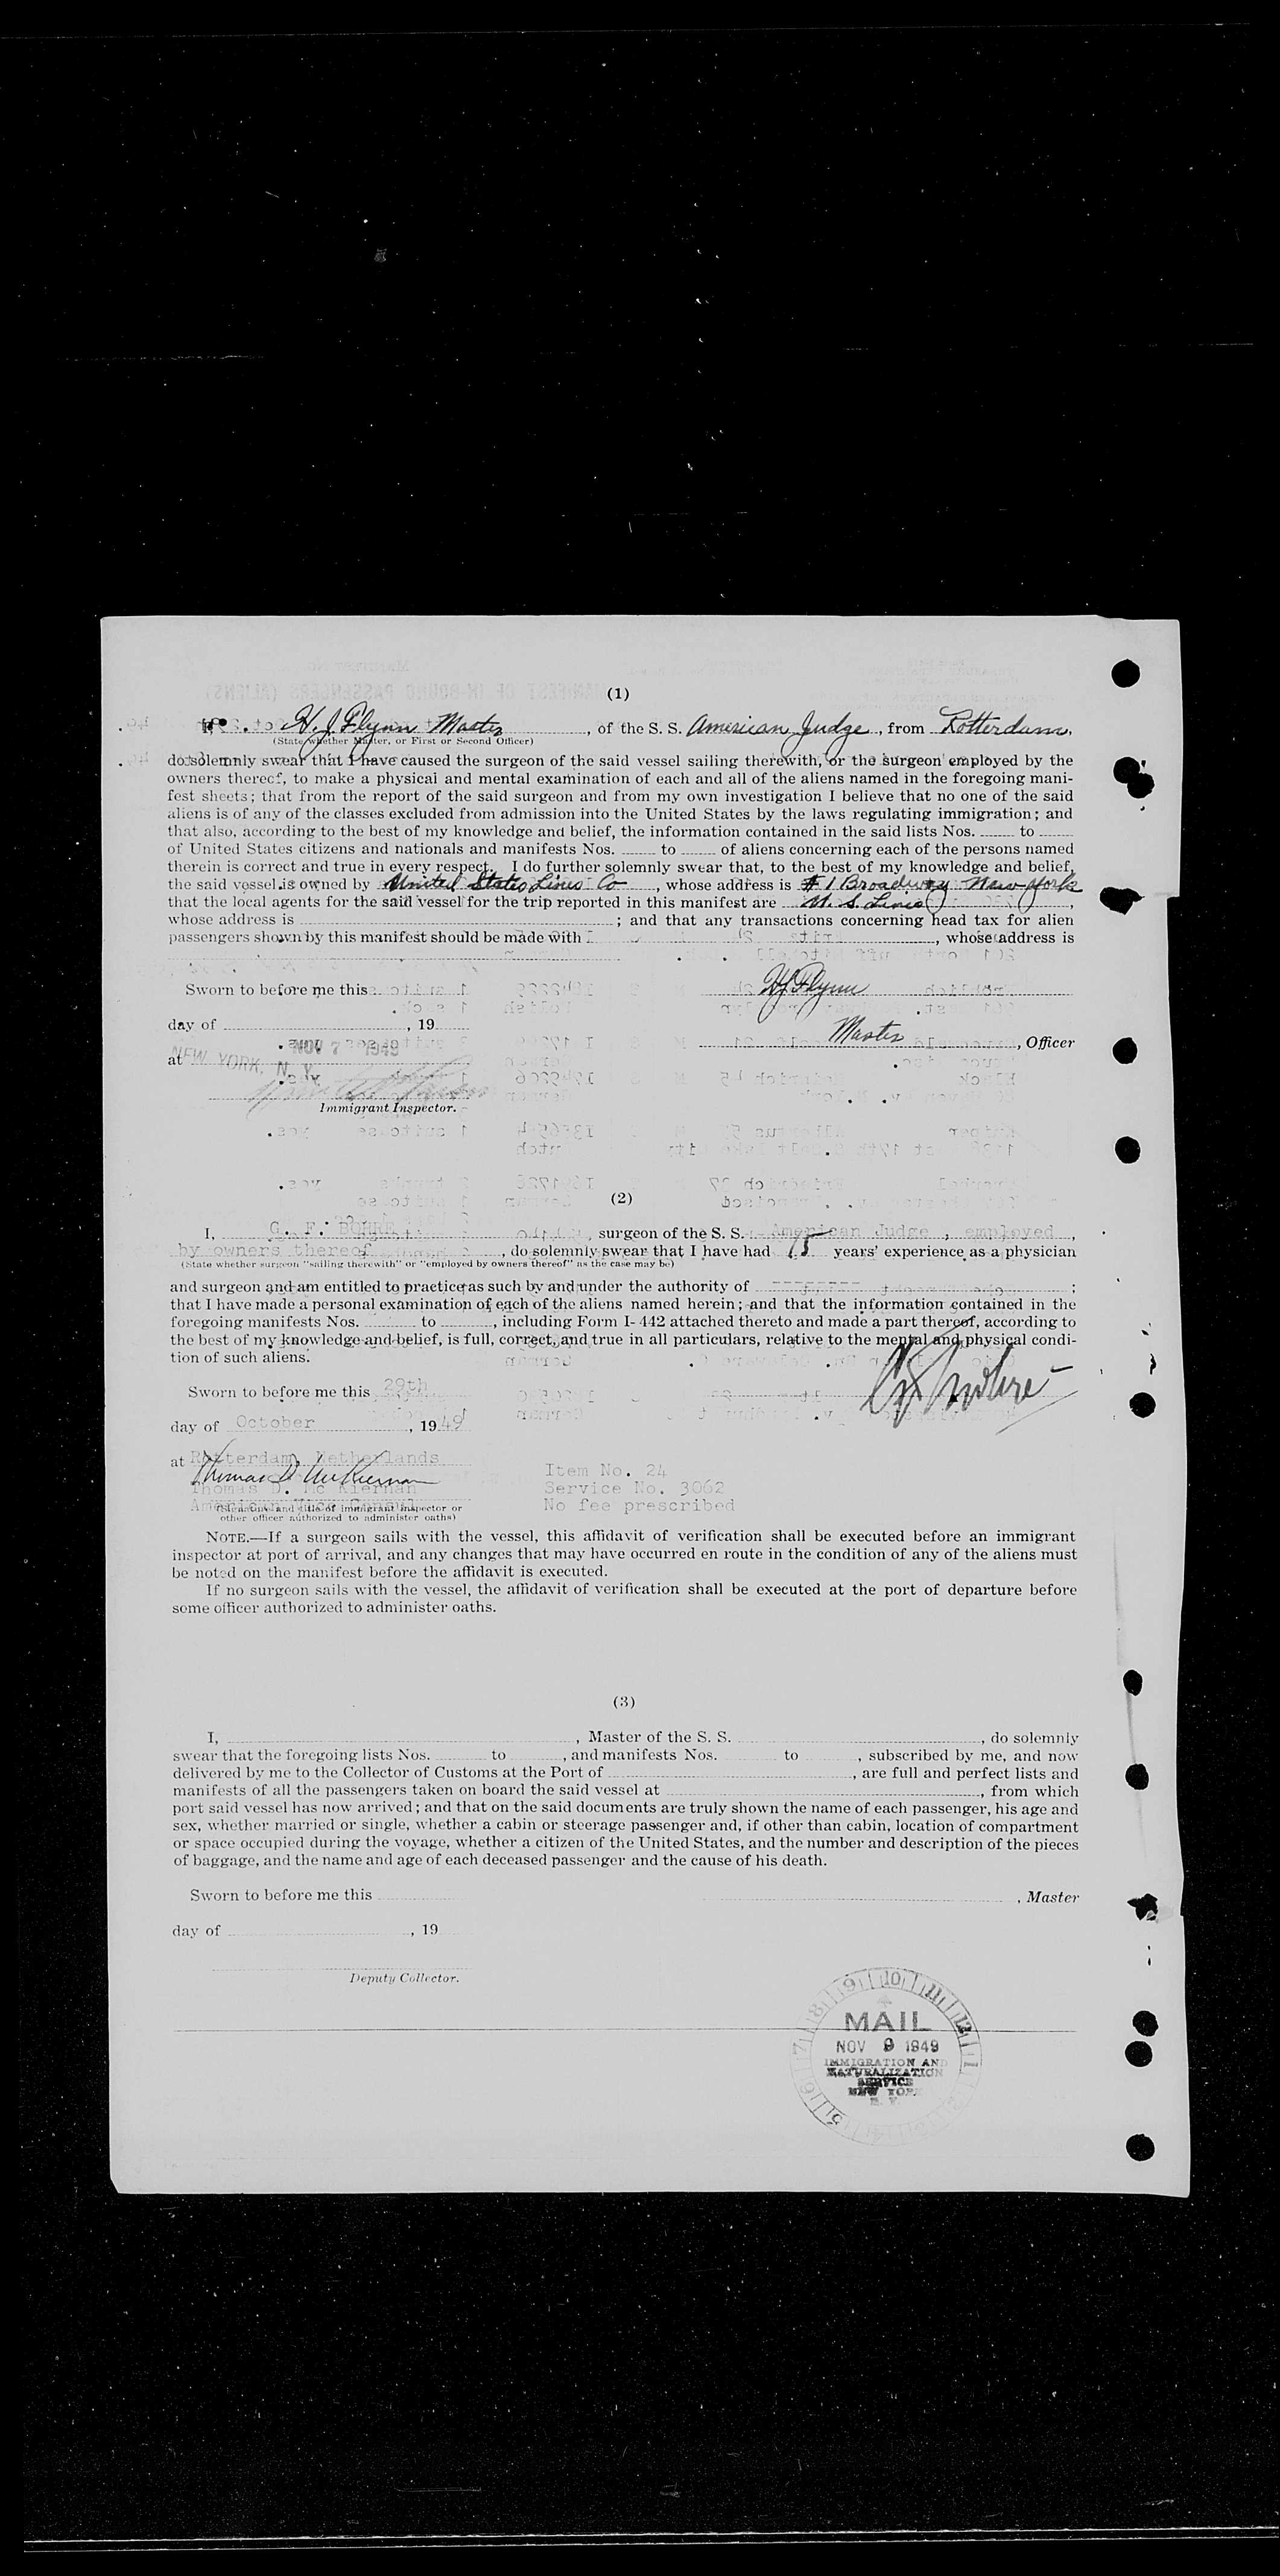 (1)
I, H. J. Flynn Master, of the S. S. American Judge, from Rotterdam,
(State whether Master, or First or Second Officer)
do solemnly swear that I have caused the surgeon of the said vessel sailing therewith, or the surgeon employed by the
owners thereof, to make a physical and mental examination of each and all of the aliens named in the foregoing mani-
fest sheets; that from the report of the said surgeon and from my own investigation I believe that no one of the said
aliens is of any of the classes excluded from admission into the United States by the laws regulating immigration; and
that also, according to the best of my knowledge and belief, the information contained in the said lists Nos. ____ to ____
of United States citizens and nationals and manifests Nos. ____ to ____ of aliens concerning each of the persons named
therein is correct and true in every respect. I do further solemnly swear that, to the best of my knowledge and belief,
the said vessel is owned by United States Lines Co, whose address is # 1 Broadway New York
that the local agents for the said vessel for the trip reported in this manifest are U. S. Lines,
whose address is ____; and that any transactions concerning head tax for alien
passengers shown by this manifest should be made with ____, whose address is
Sworn to before me this
H J Flynn
day of ____, 19
Master, Officer
NOV 7 1949
at NEW YORK, N. Y.
Immigrant Inspector.
(2)
I, G. F. BOHRE, surgeon of the S. S. American Judge, employed,
by owners thereof, do solemnly swear that I have had 15 years' experience as a physician
(State whether surgeon "sailing therewith" or "employed by owners thereof" as the case may be)
and surgeon and am entitled to practice as such by and under the authority of --------;
that I have made a personal examination of each of the aliens named herein; and that the information contained in the
foregoing manifests Nos. ____ to ____, including Form I-442 attached thereto and made a part thereof, according to
the best of my knowledge and belief, is full, correct, and true in all particulars, relative to the mental and physical condi-
tion of such aliens.
Sworn to before me this 29th
day of October, 1949
at Rotterdam, Netherlands
Thomas D. McKiernan
Thomas D. Mc Kiernan
American Vice Consul
(Signature and title of immigrant inspector or
other officer authorized to administer oaths)
Item No. 24
Service No. 3062
No fee prescribed
NOTE.—If a surgeon sails with the vessel, this affidavit of verification shall be executed before an immigrant
inspector at port of arrival, and any changes that may have occurred en route in the condition of any of the aliens must
be noted on the manifest before the affidavit is executed.
If no surgeon sails with the vessel, the affidavit of verification shall be executed at the port of departure before
some officer authorized to administer oaths.
(3)
I, ____, Master of the S. S. ____, do solemnly
swear that the foregoing lists Nos. ____ to ____, and manifests Nos. ____ to ____, subscribed by me, and now
delivered by me to the Collector of Customs at the Port of ____, are full and perfect lists and
manifests of all the passengers taken on board the said vessel at ____, from which
port said vessel has now arrived; and that on the said documents are truly shown the name of each passenger, his age and
sex, whether married or single, whether a cabin or steerage passenger and, if other than cabin, location of compartment
or space occupied during the voyage, whether a citizen of the United States, and the number and description of the pieces
of baggage, and the name and age of each deceased passenger and the cause of his death.
Sworn to before me this
, Master
day of ____, 19
Deputy Collector.
MAIL
NOV 9 1949
IMMIGRATION AND
NATURALIZATION
SERVICE
NEW YORK
N. Y.